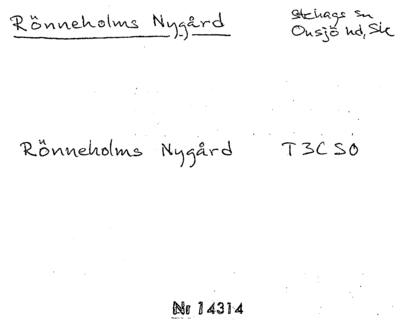 Rönneholms Nygård
Stehags sn
Onsjö hd, Sk
Rönneholms Nygård T3CSO
Nr 14314